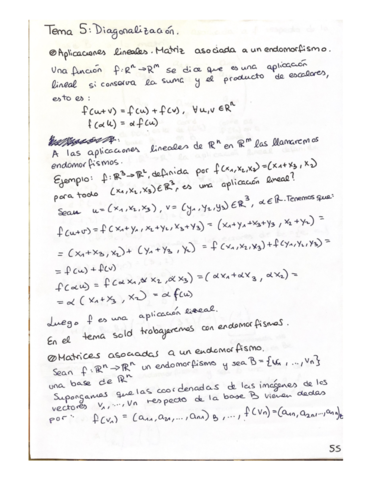 Tema 5: Diagonalización.
⊙ Aplicaciones lineales. Matriz asociada a un endomorfismo.
Una función f: ℝⁿ→ℝᵐ se dice que es una aplicación
lineal si conserva la suma y el producto de escalares,
esto es:
f(u+v) = f(u) + f(v), ∀u,v ∈ ℝⁿ
f(αu) = αf(u)
A las aplicaciones lineales de ℝⁿ en ℝᵐ las llamaremos
endomorfismos.
Ejemplo: f: ℝ³→ℝ², definida por f(x₁,x₂,x₃)=(x₁+x₃, x₂)
para todo (x₁,x₂,x₃)∈ℝ³, es una aplicación lineal?
Sean u=(x₁,x₂,x₃), v=(y₁,y₂,y₃)∈ℝ³, α∈ℝ. Tenemos que:
f(u+v) = f(x₁+y₁, x₂+y₂, x₃+y₃) = (x₁+y₁+x₃+y₃, x₂+y₂) =
= (x₁+x₃, x₂) + (y₁+y₃, y₂) = f(x₁,x₂,x₃)+f(y₁,y₂,y₃) =
= f(u) + f(v)
f(αu) = f(αx₁, αx₂, αx₃) = (αx₁+αx₃, αx₂) =
= α(x₁+x₃, x₂) = αf(u)
Luego f es una aplicación lineal.
En el tema solo trabajaremos con endomorfismos.
⊙ Matrices asociadas a un endomorfismo.
Sean f: ℝⁿ→ℝⁿ un endomorfismo y sea B={v₁, ..., vₙ}
una base de ℝⁿ
Supongamos que las coordenadas de las imágenes de los
vectores v₁, ..., vₙ respecto de la base B vienen dadas
por: f(v₁) = (a₁₁, a₂₁, ..., aₙ₁)B, ..., f(vₙ)=(a₁ₙ, a₂ₙ, ..., aₙₙ)B
55